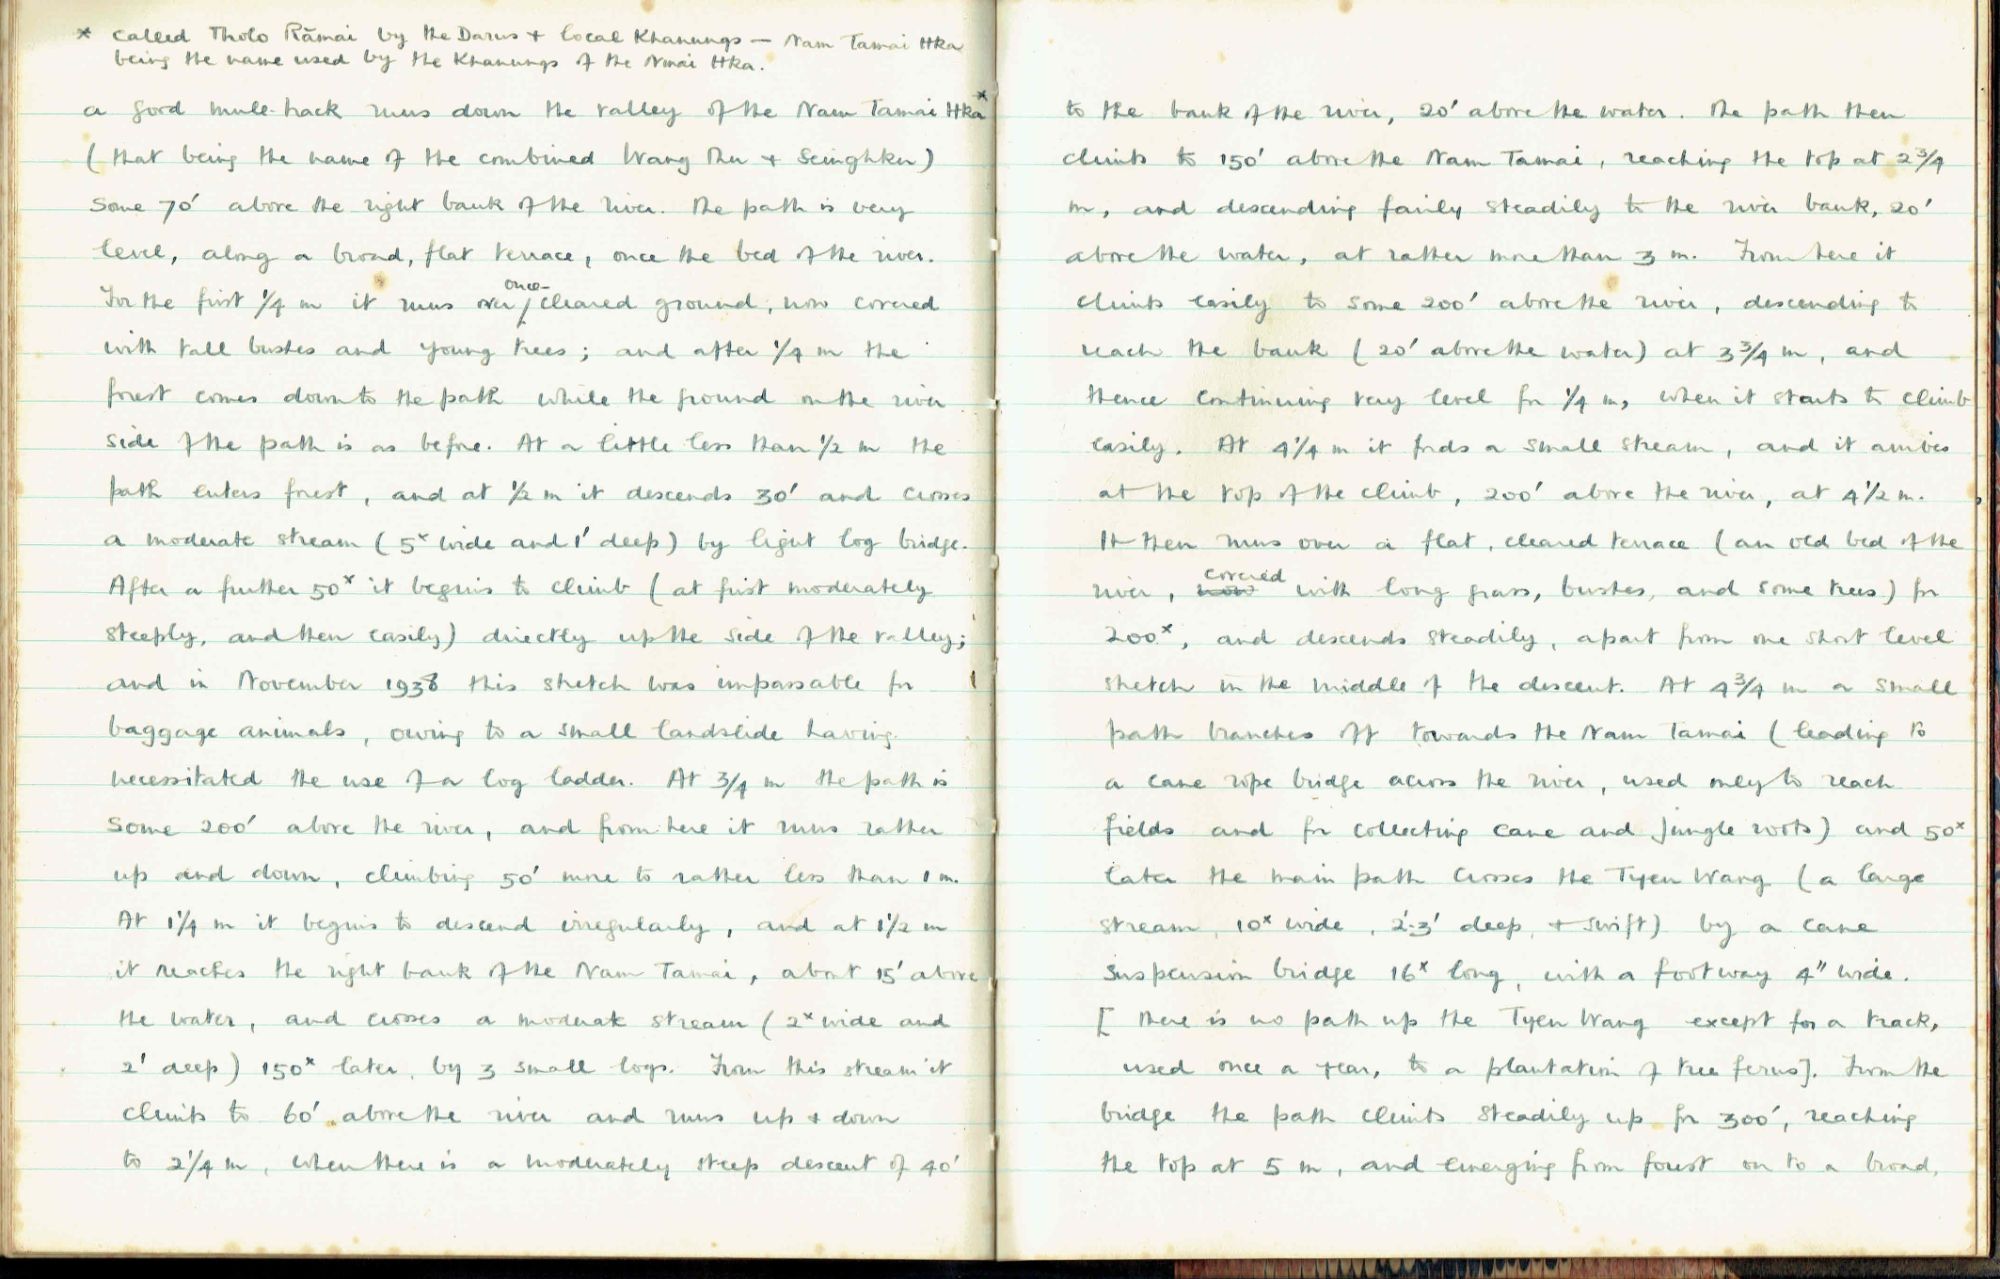 * called Tholo Rāmai by the Darus + local Khanungs — Nam Tamai Hka
being the name used by the Khanungs of the Nmai Hka.
a good mule-track runs down the valley of the Nam Tamai Hka*
(that being the name of the combined Wang Dhu + Seinghku)
some 70' above the right bank of the river. The path is very
level, along a broad, flat terrace, once the bed of the river.
For the first 1/4 m it runs over once-cleared ground, now covered
with tall bushes and young trees; and after 1/4 m the
forest comes down to the path while the ground on the river
side of the path is as before. At a little less than 1/2 m the
path enters forest, and at 1/2 m it descends 30' and crosses
a moderate stream (5ˣ wide and 1' deep) by light log bridge.
After a further 50ˣ it begins to climb (at first moderately
steeply, and then easily) directly up the side of the valley;
and in November 1938 this stretch was impassable for
baggage animals, owing to a small landslide having
necessitated the use of a log ladder. At 3/4 m the path is
some 200' above the river, and from here it runs rather
up and down, climbing 50' more to rather less than 1 m.
At 1 1/4 m it begins to descend irregularly, and at 1 1/2 m
it reaches the right bank of the Nam Tamai, about 15' above
the water, and crosses a moderate stream (2ˣ wide and
2' deep) 150ˣ later, by 3 small logs. From this stream it
climbs to 60' above the river and runs up + down
to 2 1/4 m, when there is a moderately steep descent of 40'
to the bank of the river, 20' above the water. The path then
climbs to 150' above the Nam Tamai, reaching the top at 2 3/4
m, and descending fairly steadily to the river bank, 20'
above the water, at rather more than 3 m. From here it
climbs easily to some 200' above the river, descending to
reach the bank (20' above the water) at 3 3/4 m, and
thence continuing very level for 1/4 m, when it starts to climb
easily. At 4 1/4 m it fords a small stream, and it arrives
at the top of the climb, 200' above the river, at 4 1/2 m.
It then runs over a flat, cleared terrace (an old bed of the
river, covered with long grass, bushes, and some trees) for
200ˣ, and descends steadily, apart from one short level
stretch in the middle of the descent. At 4 3/4 m a small
path branches off towards the Nam Tamai (leading to
a cane rope bridge across the river, used only to reach
fields and for collecting cane and jungle roots) and 50ˣ
later the main path crosses the Tyen Wang (a large
stream, 10ˣ wide, 2'-3' deep, + swift) by a cane
suspension bridge 16ˣ long, with a footway 4" wide.
[There is no path up the Tyen Wang except for a track,
used once a year, to a plantation of tree ferns]. From the
bridge the path climbs steadily up for 300', reaching
the top at 5 m, and emerging from forest on to a broad,